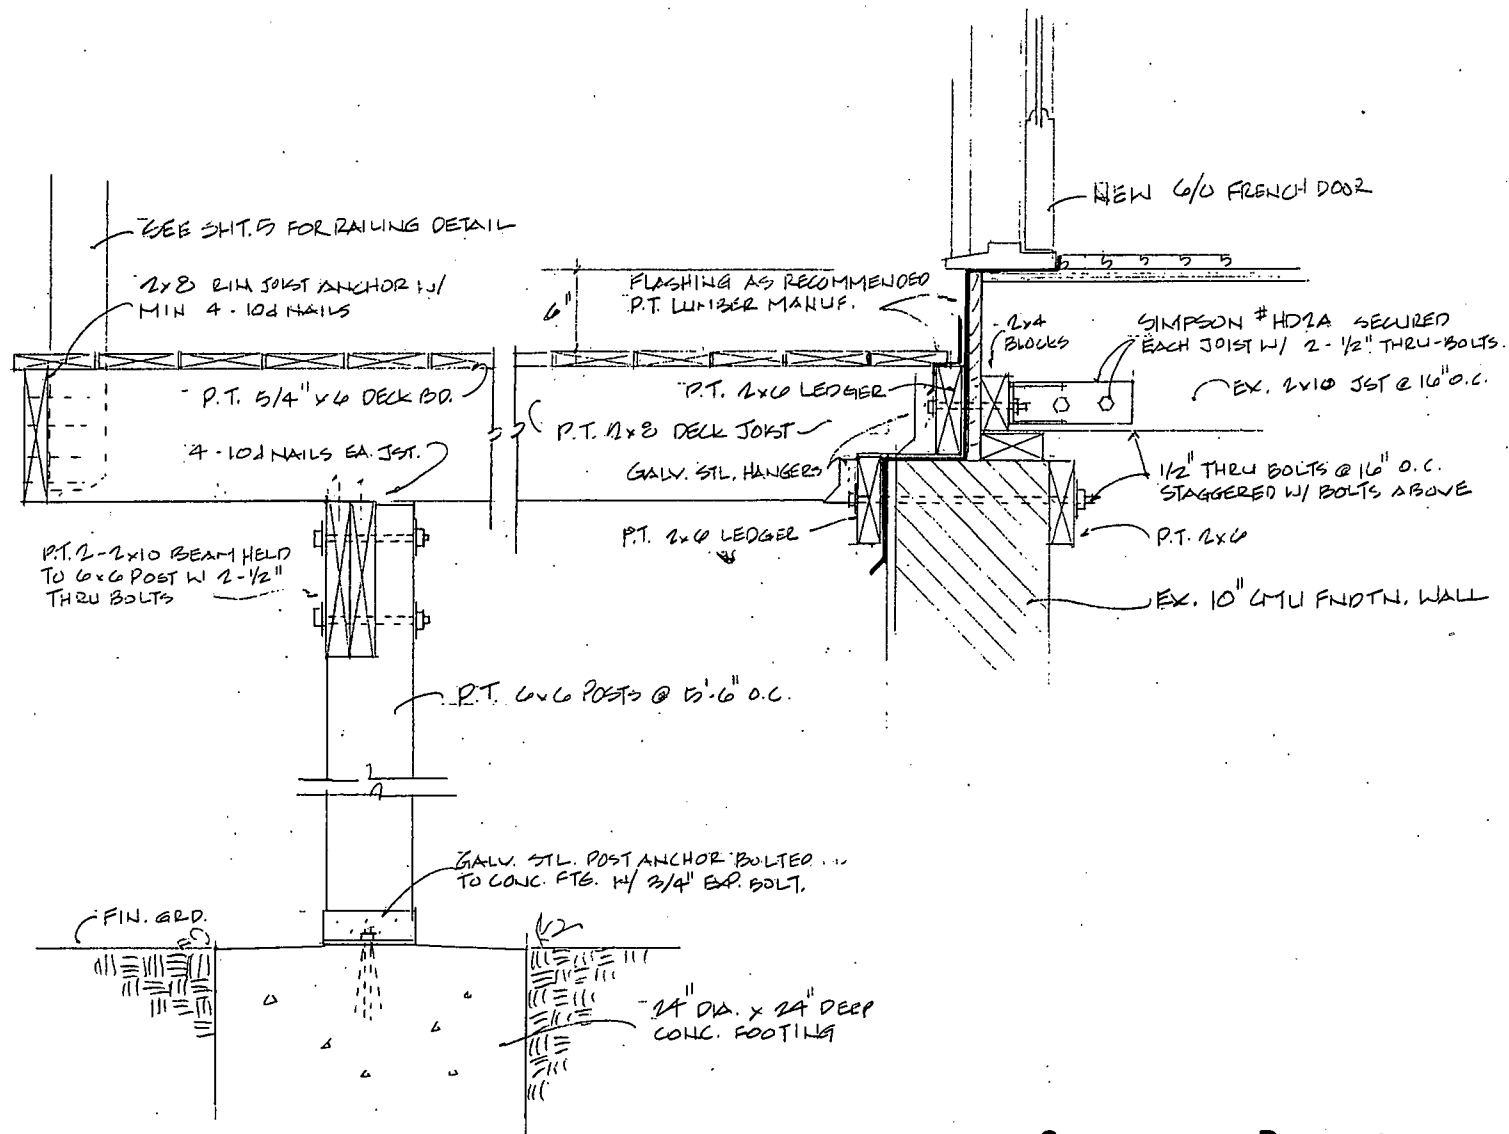 NEW 6/0 FRENCH DOOR
SEE SHT. 5 FOR RAILING DETAIL
2x8 RIM JOIST ANCHOR W/
MIN 4 - 10d NAILS
6"
FLASHING AS RECOMMENDED
P.T. LUMBER MANUF.
2x4
BLOCKS
SIMPSON #HD2A SECURED
EACH JOIST W/ 2 - 1/2" THRU-BOLTS.
EX. 2x10 JST @ 16" O.C.
P.T. 5/4" x 6 DECK BD.
P.T. 2x6 LEDGER
P.T. 2x8 DECK JOIST
4 - 10d NAILS EA. JST.
GALV. STL. HANGERS
1/2" THRU BOLTS @ 16" O.C.
STAGGERED W/ BOLTS ABOVE
P.T. 2x6 LEDGER
P.T. 2x6
P.T. 2 - 2x10 BEAM HELD
TO 6x6 POST W 2 - 1/2"
THRU BOLTS
EX. 10" CMU FNDTN. WALL
P.T. 6x6 POSTS @ 5'-6" O.C.
GALV. STL. POST ANCHOR BOLTED
TO CONC. FTG. W/ 3/4" EXP. BOLT.
FIN. GRD.
24" DIA. x 24" DEEP
CONC. FOOTING